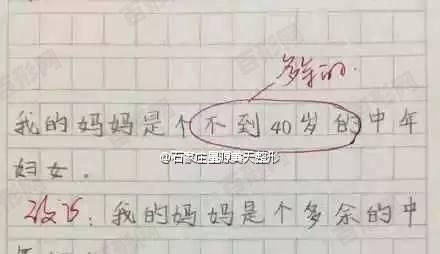 多余的.
我的妈妈是个不到40岁的中年
妇女.
@石家庄星源黄天整形
改为:我的妈妈是个多余的中